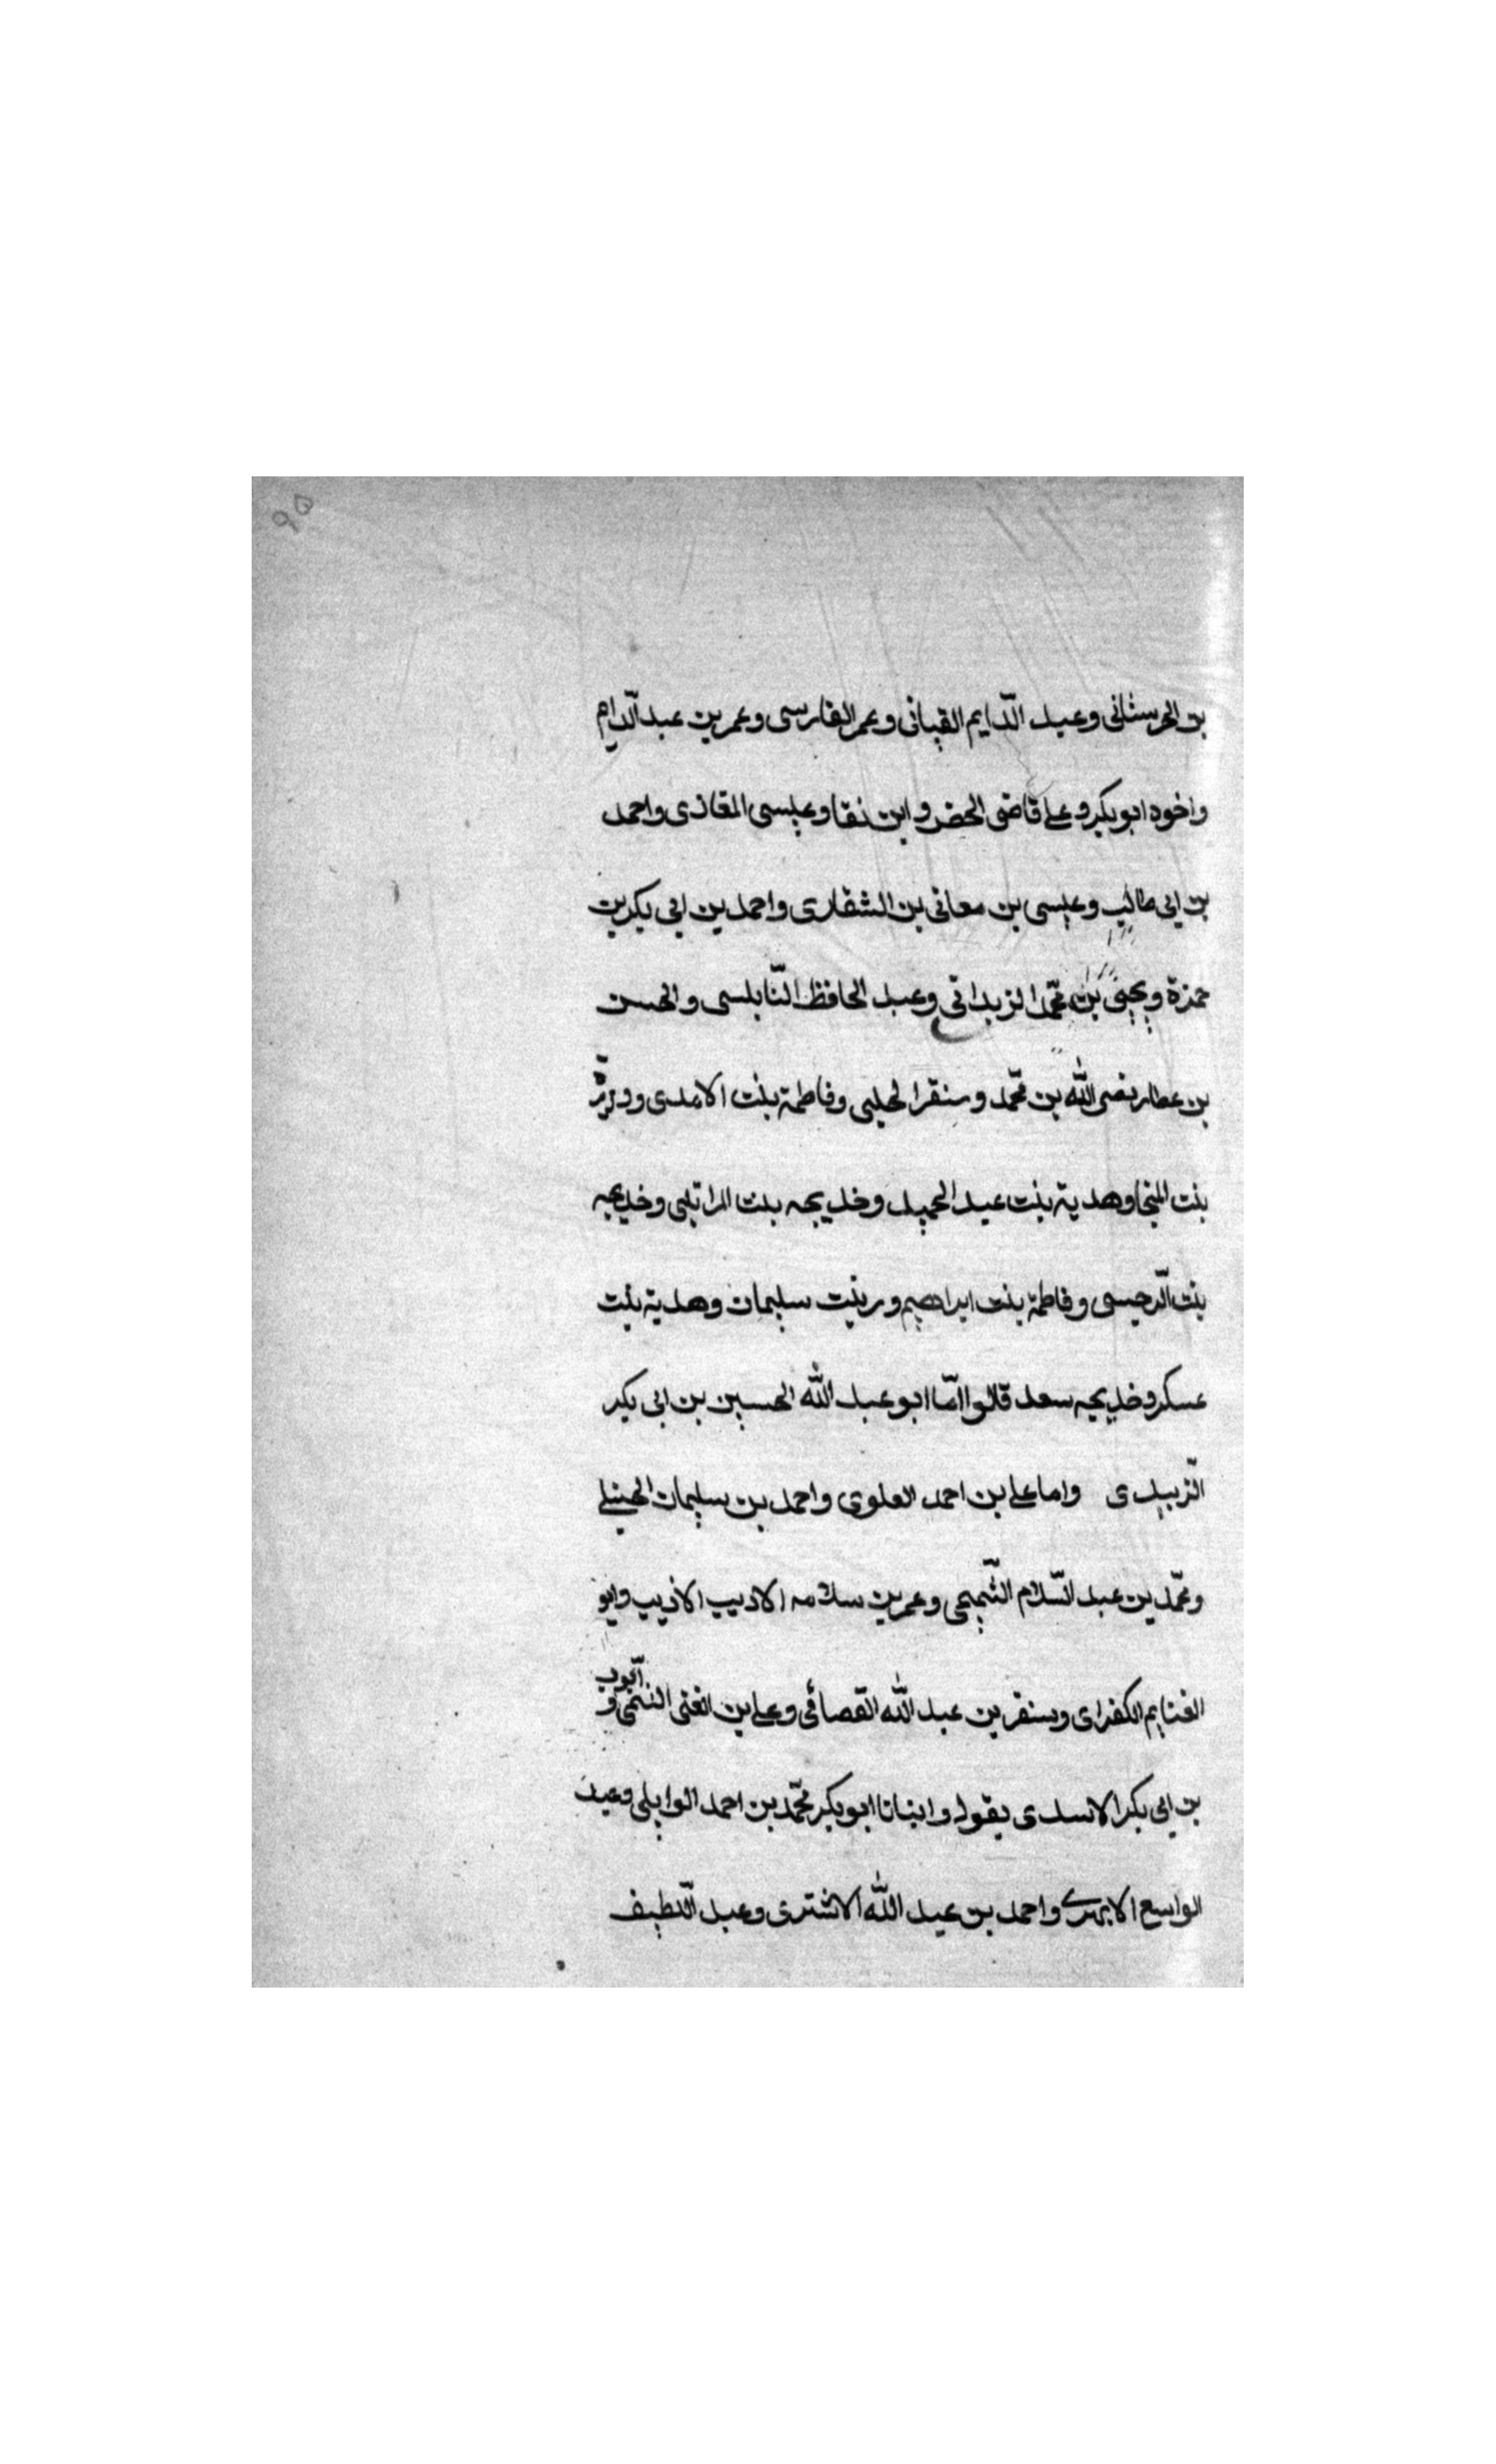 ٩٥
بن الحرستانى وعبد الدّايم القبانى وعمر الفارسى وعمر بن عبد الدّايم
واخوه ابو بكر و على قاضى الحضر و ابن نقا وعيسى المغازى واحمد
بن ابى طالب وعيسى بن معانى بن الشقارى واحمد بن ابى بكر بن
حمزة ويحيى بن محمّد الزبدانى وعبد الحافظ النّابلسى والحسن
بن عطار نصر الله بن محمّد وسنقر الحلبى وفاطمة بنت الامدى ووزيرة
بنت المنجا وهدية بنت عبد الحميد وخديجه بنت المراتبى وخديجه
بنت الرّحيسى وفاطمة بنت ابراهيم وزينت سليمان وهدية بنت
عسكر وخديجه سعد قالوا امّا ابو عبد الله الحسين بن ابى بكر
الزّبيدى واما على بن احمد العلوى واحمد بن سليمان الحنبلى
ومحمّد بن عبد السّلام التّميمى وعمر بن سلامه الاديب الاديب وابو
الغنايم الكفراى وسنقر بن عبد الله القصائى وعلى بن الغنى و ايّوب
بن ابى بكر الاسدى يقول وانبانا ابو بكر محمّد بن احمد الوايلى وعبد
الواسع الابهرى واحمد بن عبد الله الاشترى وعبد اللّطيف